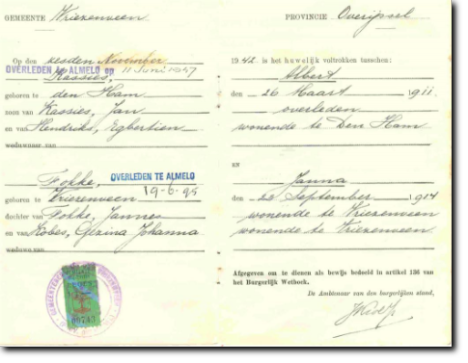 GEMEENTE Vriezenveen
Op den zesden November
OVERLEDEN TE ALMELO op 11 Juni 1957
Kassies,
geboren te den Ham
zoon van Kassies, Jan
en van Hendriks, Egbertien
weduwnaar van
Fokke, OVERLEDEN TE ALMELO
19-6-95
geboren te Vriezenveen
dochter van Fokke, Jannes
en van Kobes, Gezina Johanna
weduwe van
PROVINCIE Overijssel
1942 is het huwelijk voltrokken tusschen:
Albert
den 26 Maart 1911
overleden
wonende te Den Ham
en
Janna
den 23 September 1914
wonende te Vriezenveen
wonende te Vriezenveen
Afgegeven om te dienen als bewijs bedoeld in artikel 136 van
het Burgerlijk Wetboek.
De Ambtenaar van den burgerlijken stand,